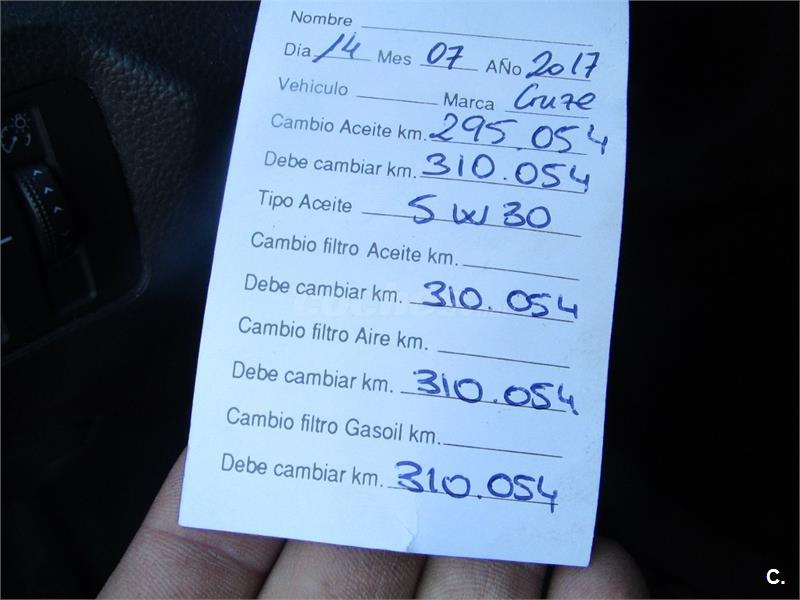 Nombre
Día 14 Mes 07 AÑo 2017
Vehiculo Marca Cruze
Cambio Aceite km. 295.054
Debe cambiar km. 310.054
Tipo Aceite 5W30
Cambio filtro Aceite km.
Debe cambiar km. 310.054
Cambio filtro Aire km.
Debe cambiar km. 310.054
Cambio filtro Gasoil km.
Debe cambiar km. 310.054
C.